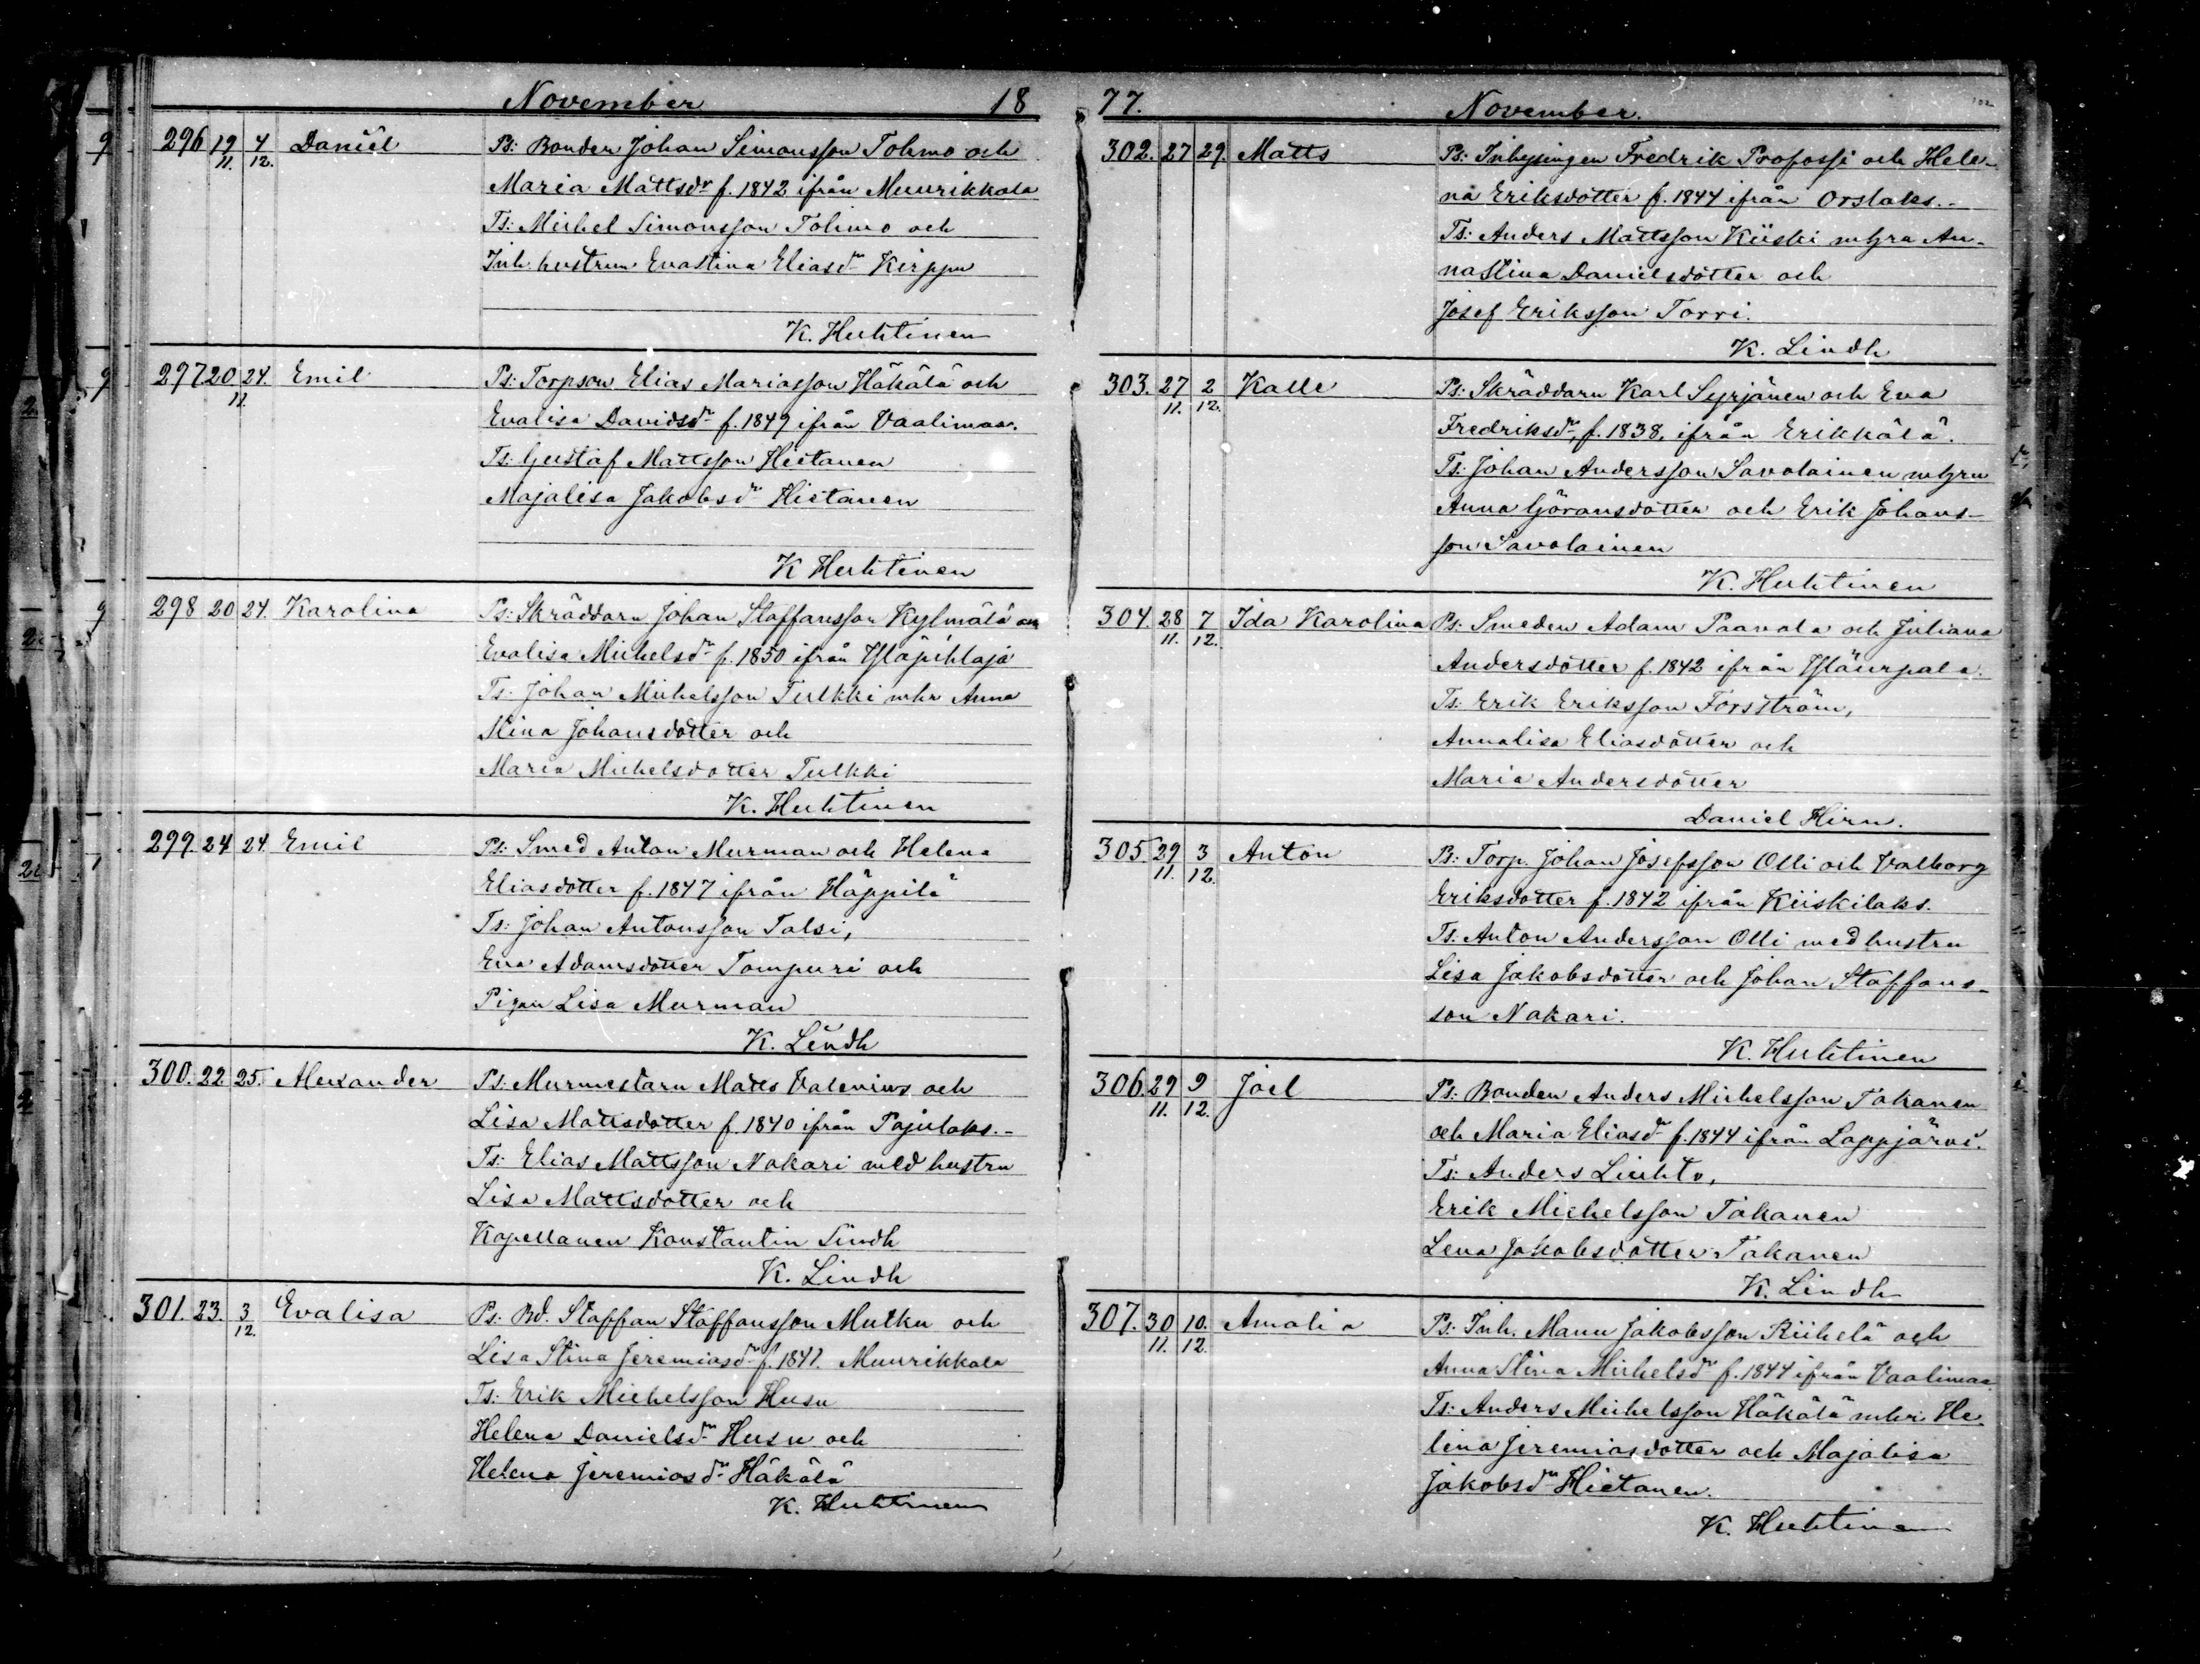 November 18
296 19/11. 4/12. Daniël Ps: Bonden Johan Simonsson Tohmo och
Maria Mattsdr f. 1842 ifrån Muurikkala
Ts: Michel Simonsson Tohmo och
Inh. hustrun Evastina Eliasdr Kirppu
K. Huhtinen
297 20/11. 24. Emil Ps: Torpson Elias Mariasson Häkälä och
Evalisa Davidsdr f. 1849 ifrån Vaalimaa.
Ts: Gustaf Mattsson Hietanen
Majalisa Jakobsdr Hietanen
K Huhtinen
298 20 24. Karolina Ps: Skräddarn Johan Staffansson Kylmälä och
Evalisa Michelsdr f. 1850 ifrån Yläpihlaja
Ts: Johan Michelsson Tulkki mhr Anna
Stina Johansdotter och
Maria Michelsdotter Tulkki
K. Huhtinen
299. 24 24. Emil Ps: Smed Anton Murman och Helena
Eliasdotter f. 1847 ifrån Häppilä
Ts: Johan Antonsson Talsi,
Eva Adamsdotter Tompuri och
Pigan Lisa Murman
K. Lindh
300. 22 25. Alexander Ps: Murmestarn Matts Valenius och
Lisa Mattsdotter f. 1840 ifrån Pajulaks.-
Ts: Elias Mattsson Nakari med hustru
Lisa Mattsdotter och
Kapellanen Konstantin Lindh
K. Lindh
301. 23. 3/12. Evalisa Ps: Bd. Staffan Staffansson Mulku och
Lisa Stina Jeremiasdr f. 1841. Muurikkala
Ts: Erik Michelsson Husu
Helena Danielsdr Husu och
Helena Jeremiasdr Häkälä
K. Huhtinen
77. November.
302. 27 29. Matts Ps: Inhysingen Fredrik Profossi och Hele-
na Eriksdotter f. 1844 ifrån Orslaks.-
Ts: Anders Mattsson Kiiski m hru An-
na Stina Danielsdotter och
Josef Eriksson Torri.
K. Lindh
303. 27/11. 2/12. Kalle Ps: Skräddarn Karl Syrjänen och Eva
Fredriksdr, f. 1838, ifrån Erikkälä.
Ts: Johan Andersson Savolainen m hru
Anna Göransdotter och Erik Johans-
son Savolainen
K. Huhtinen
304. 28/11. 7/12. Ida Karolina Ps: Smeden Adam Paavola och Juliana
Andersdotter f. 1842 ifrån Yläurpala.
Ts: Erik Eriksson Forsström,
Annalisa Eliasdotter och
Maria Andersdotter
Daniel Hirn.
305. 29/11. 3/12. Anton Ps: Torp. Johan Josefsson Olli och Valborg
Eriksdotter f. 1842 ifrån Kiiskilaks.
Ts: Anton Andersson Olli med hustru
Lisa Jakobsdotter och Johan Staffans-
son Nakari.
K. Huhtinen
306. 29/11. 9/12. Joel Ps: Bonden Anders Michelsson Takanen
och Maria Eliasdr f. 1844 ifrån Lappjärvi.
Ts: Anders Liuhto,
Erik Michelsson Takanen
Lena Jakobsdotter Takanen
K. Lindh
307. 30/11. 10./12. Amalia Ps: Inh. Manu Jakobsson Riihelä och
Anna Stina Michelsdr f. 1844 ifrån Vaalimaa
Ts: Anders Michelsson Häkälä mhr He
lena Jeremiasdotter och Majalisa
Jakobsdr Hietanen.
K. Huhtinen